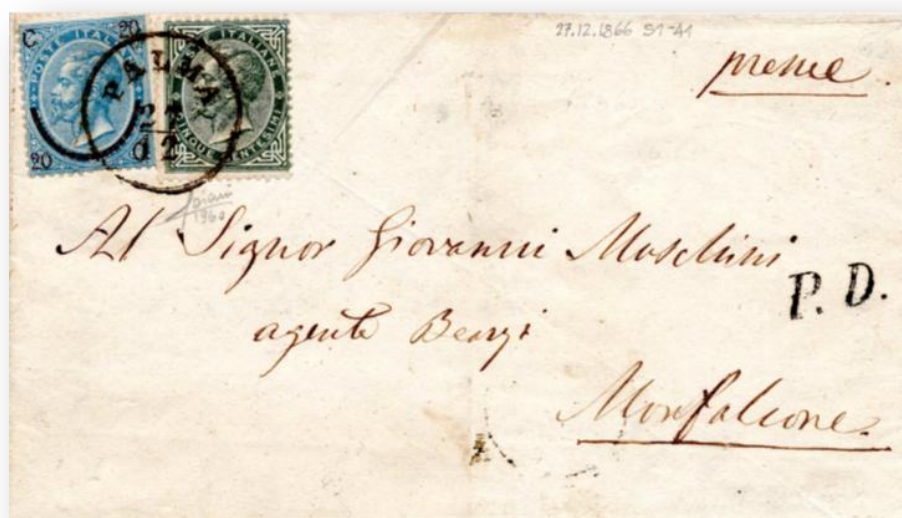 C 20
POSTE ITALIANE
20 20
POSTE ITALIANE
CINQUE CENTESIMI
PALMA
27
12
27.12.1866 S1-A1
preme
1960
Al Signor Giovanni Muschini
P. D.
agente Bearzi
Monfalcone